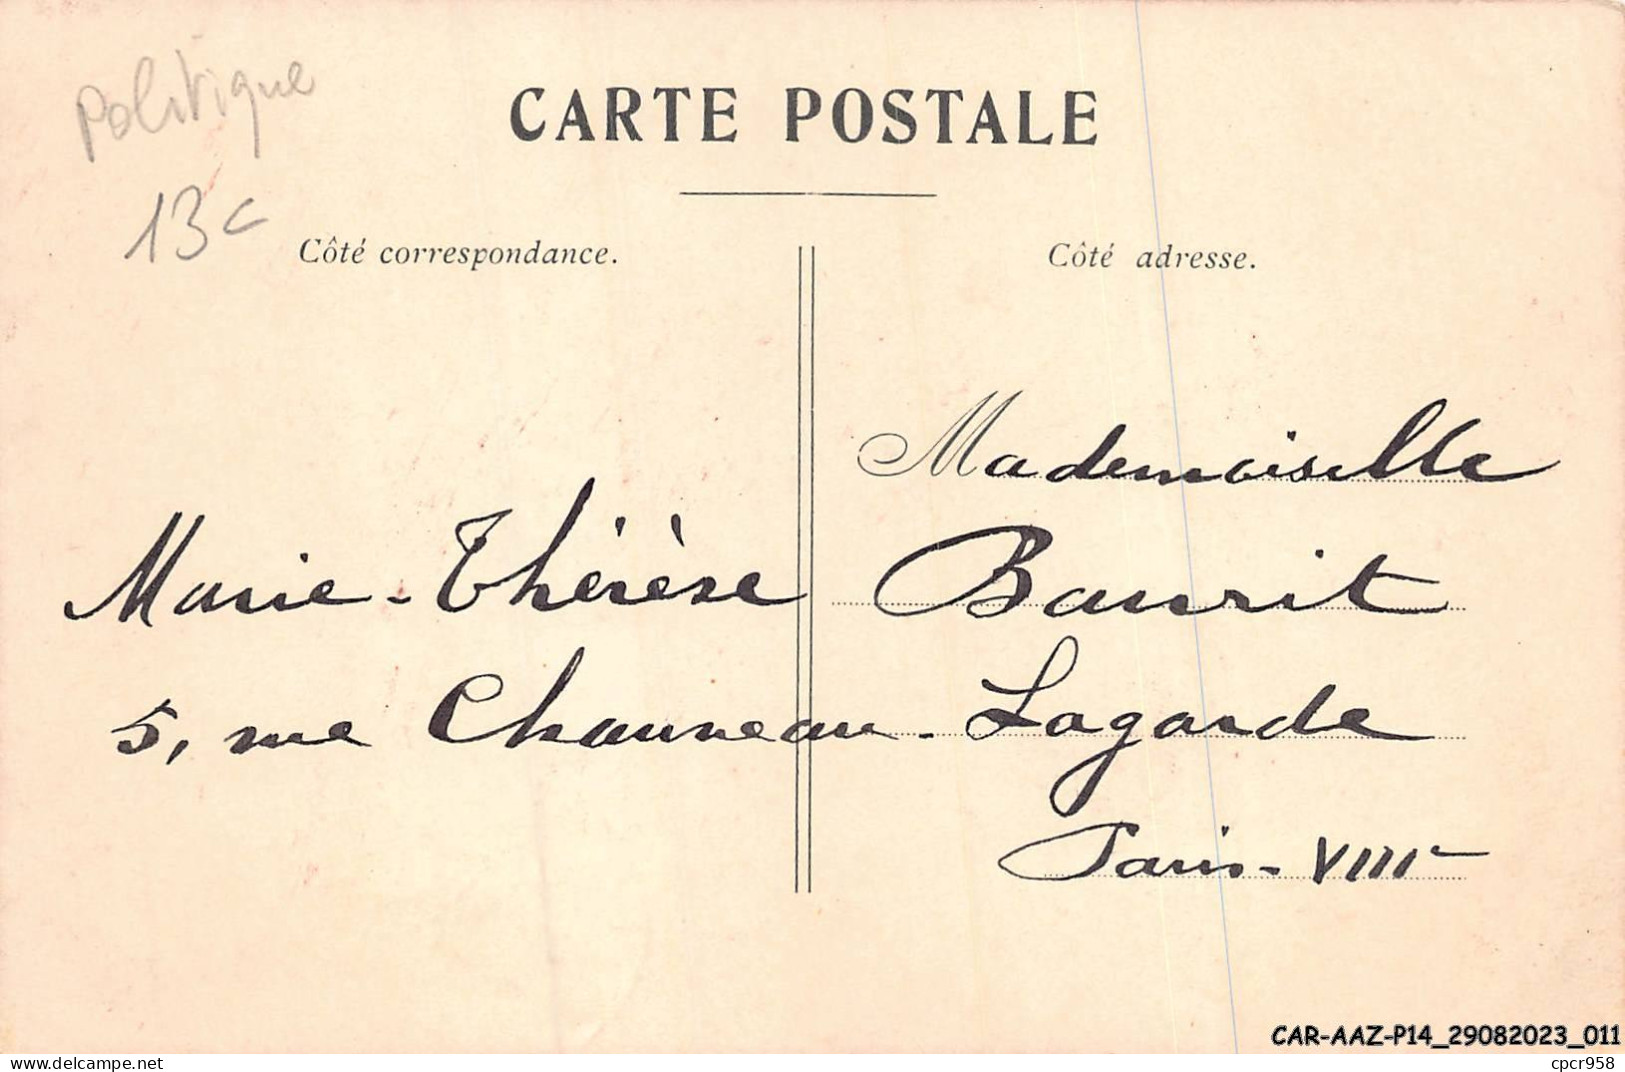 Politique
13c
CARTE POSTALE
Côté correspondance.
Côté adresse.
Mademoiselle
Marie-Thérèse Baurit
5, rue Chauveau-Lagarde
Paris-VIIIe
CAR-AAZ-P14_29082023_011
delcampe.net
cpcr958